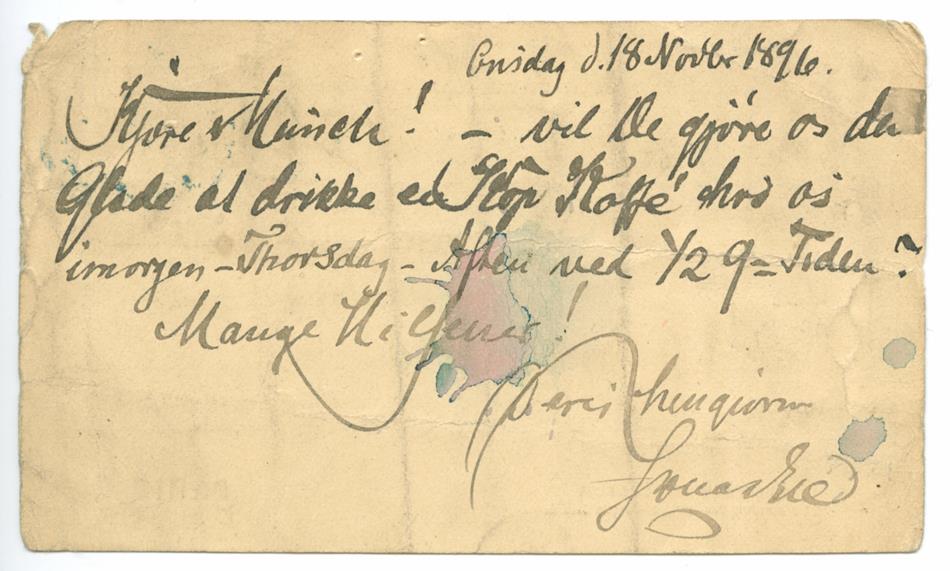 Onsdag d. 18 Novbr 1896.
Kjære Munch! – vil De gjöre os den
Glæde at drikke en Kop Kaffé hos os
imorgen – Thorsdag – Aften ved 1/2 9 – Tiden?
Mange Hilsener!
Deres hengivne
Jonas Lied